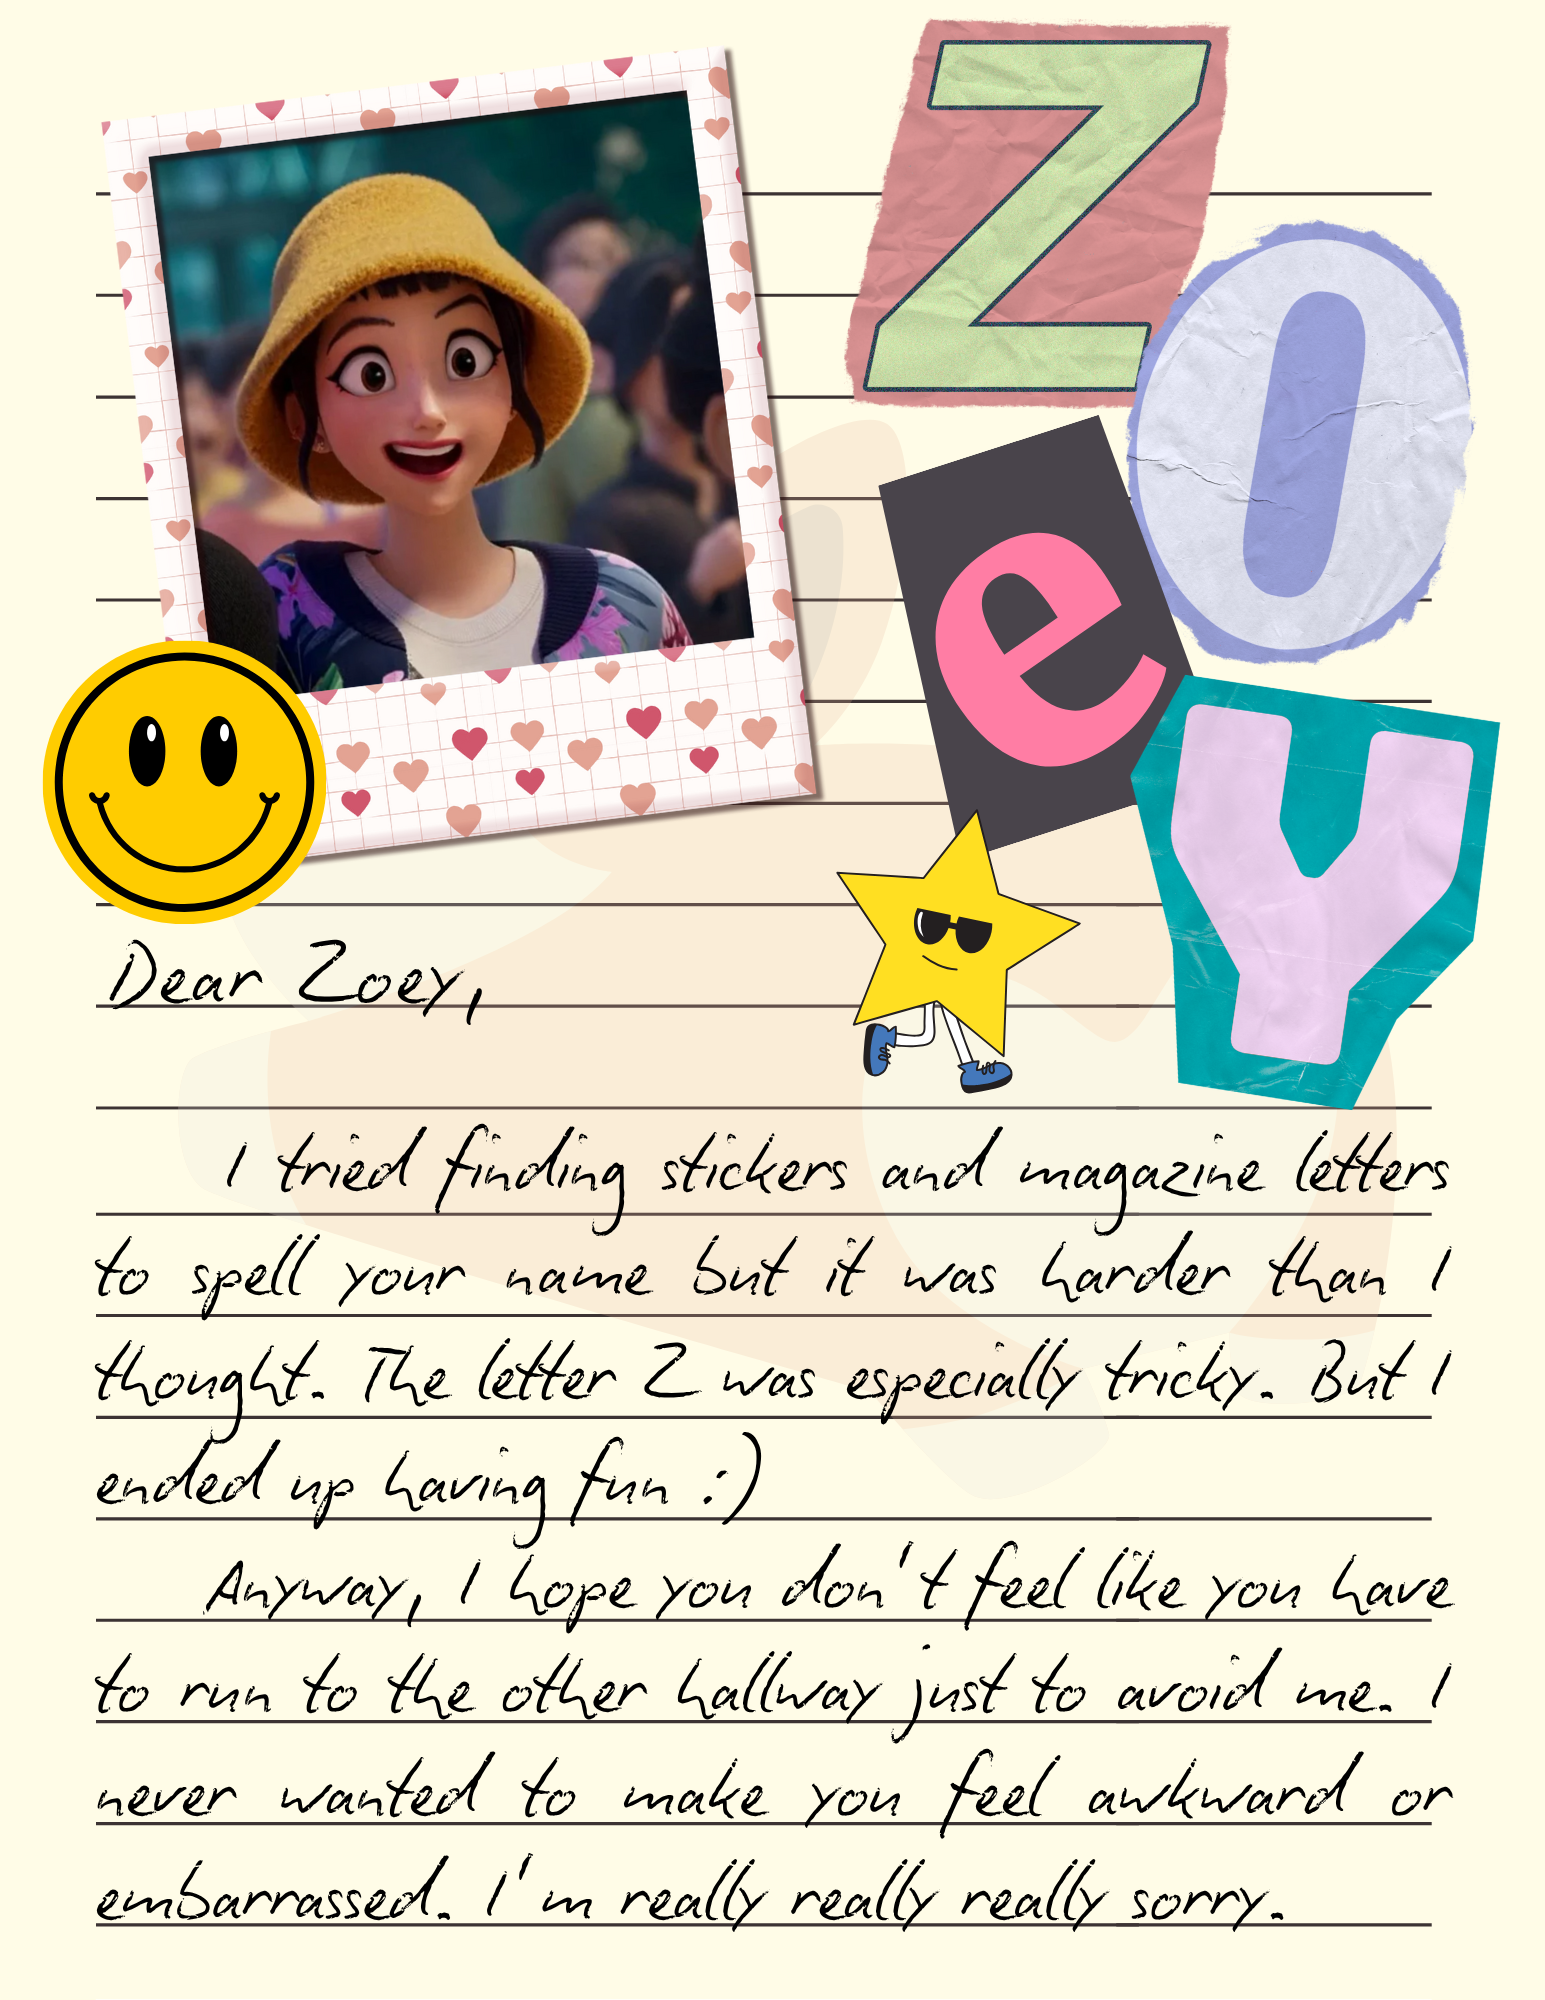 Z
O
e
Y
Dear Zoey,
I tried finding stickers and magazine letters
to spell your name but it was harder than I
thought. The letter Z was especially tricky. But I
ended up having fun :)
Anyway, I hope you don't feel like you have
to run to the other hallway just to avoid me. I
never wanted to make you feel awkward or
embarrassed. I'm really really really sorry.